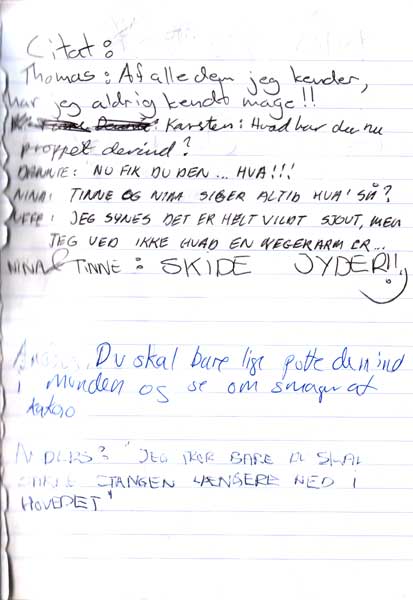 Citat:
Thomas: Af alle dem jeg kender,
har jeg aldrig kendt mage!!
Karsten: Hvad har du nu
proppet derind?
DANNIE: NU FIK DU DEN... HVA'!!!
NINA: TINNE OG NINA SIGER ALTID HVA! SÅ?
UFFE: JEG SYNES DET ER HELT VILDT SJOUT, MEN
JEG VED IKKE HVAD EN NEGERARM ER...
NINA & TINNE: SKIDE JYDER!!
Du skal bare lige putte dem ind
i munden og se om smager at
kakao
ANDERS: "JEG BARE DU SKAL
STANGEN LÆNGERE NED I
HOVEDET"